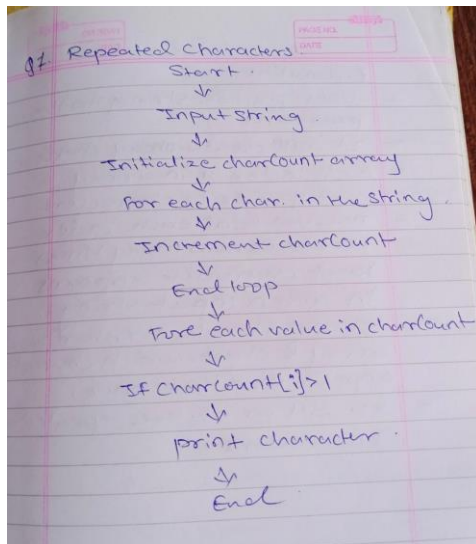 97. Repeated Characters
Start.
↓
Input String.
↓
Initialize charCount array
↓
For each char. in the String.
↓
Increment charCount
↓
End loop
↓
Fore each value in charCount
↓
If CharCount[i]>1
↓
print character.
↓
End.